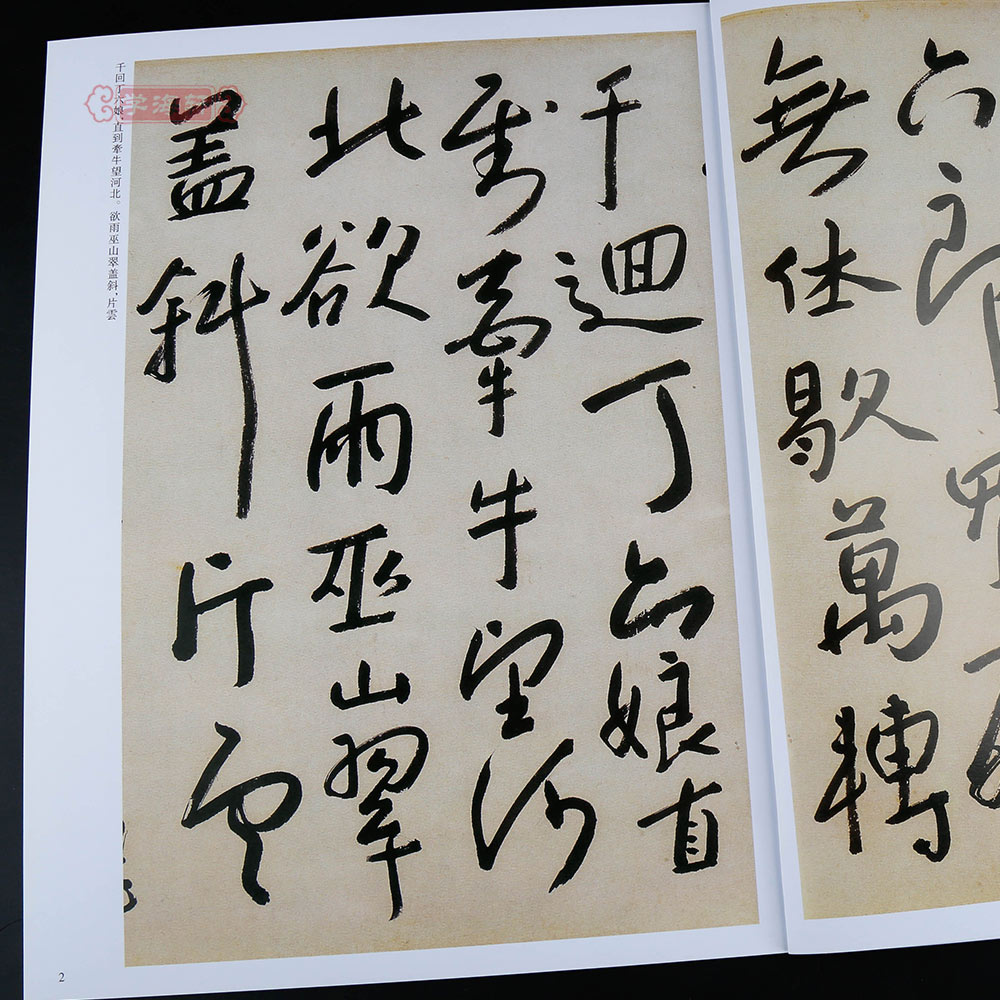 六郎
無休歇萬轉
千迴丁六娘直
到牽牛望河
北欲雨巫山翠
盖斜片雲
千回丁六娘，直到牽牛望河北。欲雨巫山翠盖斜，片雲
学海轩
2